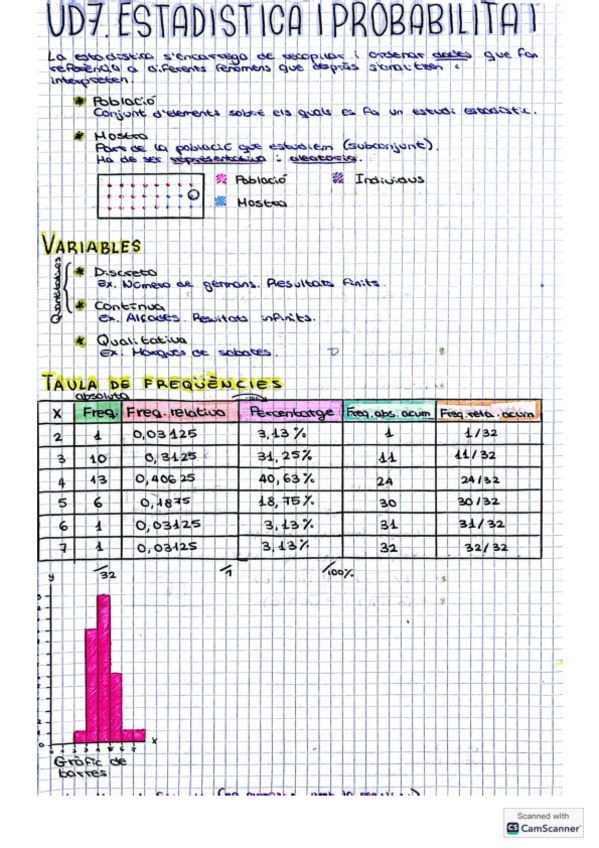 UD7. ESTADISTICA I PROBABILITAT
La estadistica s'encarrega de recopilar i ordenar dades que fan
referència a diferents fenòmens que després s'analitzen i
interpreten.
* Població
Conjunt d'elements sobre els quals es fa un estudi estadístic.
* Mostra
Part de la població que estudiem (subconjunt).
Ha de ser representativa i aleatoria.
Població
Individus
Mostra
VARIABLES
Quantitatives
* Discreta
Ex. Número de germans. Resultats finits.
* Contínua
Ex. Alçades. Resultats infinits.
* Qualitativa
Ex. Marques de sabates.
TAULA DE FREQÜÈNCIES
absoluta
X Freq. Freq. relativa Percentatge Freq. abs. acum Freq. rela. acum
2 1 0,03125 3,13% 1 1/32
3 10 0,3125 31,25% 11 11/32
4 13 0,40625 40,63% 24 24/32
5 6 0,1875 18,75% 30 30/32
6 1 0,03125 3,13% 31 31/32
7 1 0,03125 3,13% 32 32/32
32 1 100%
y
x
Gràfic de
barres
Scanned with
CS CamScanner